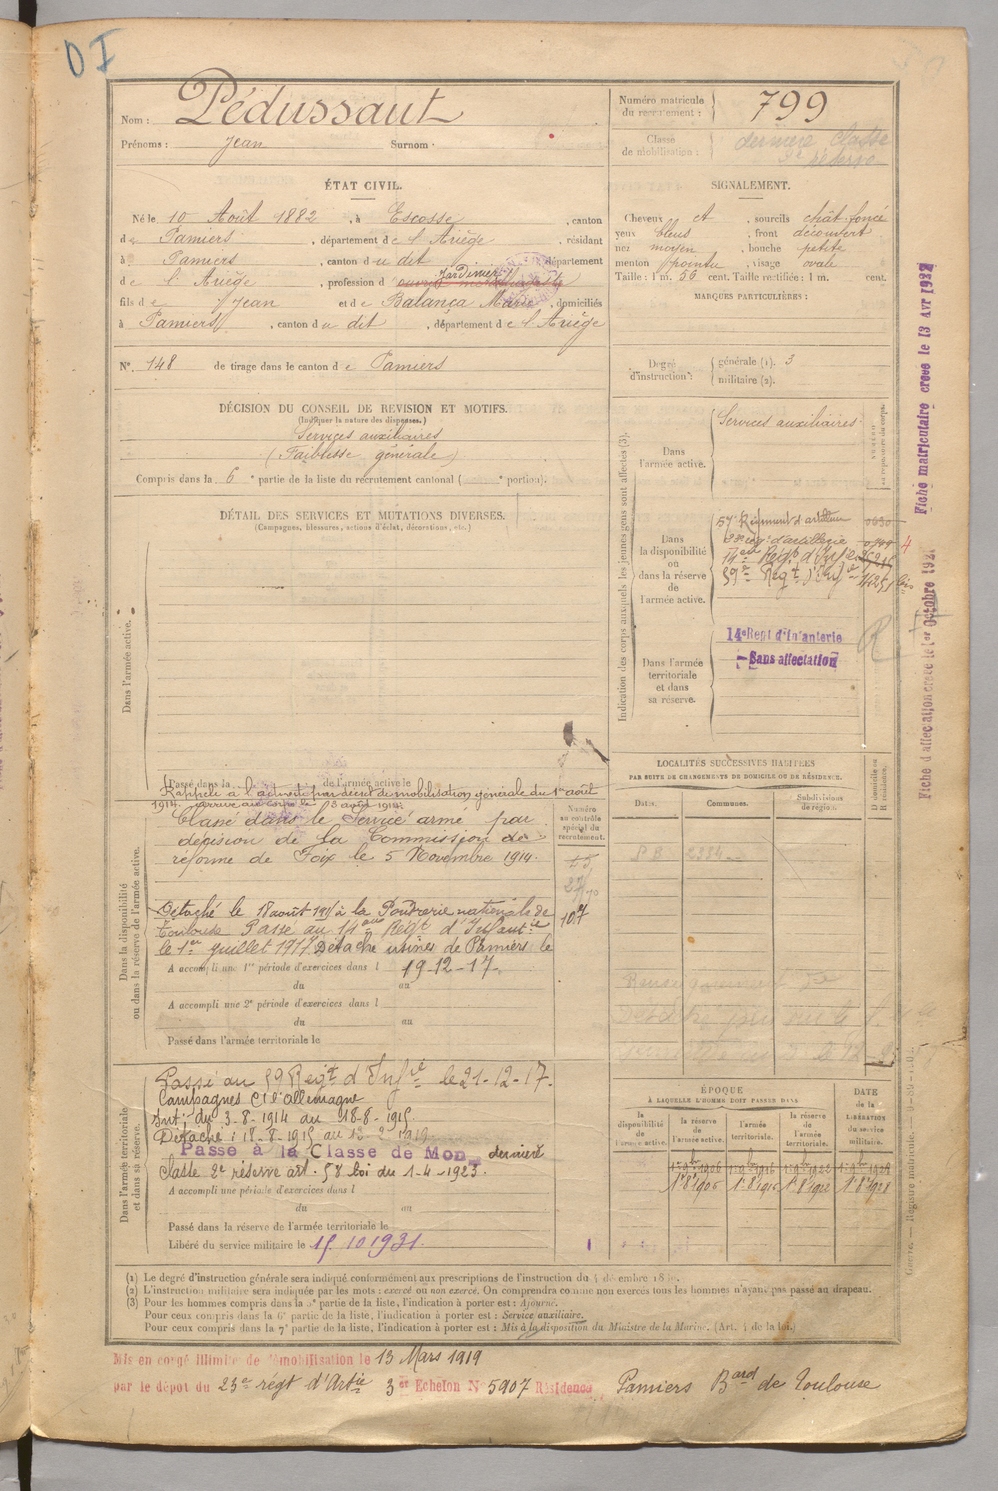 DI
Nom : Pédussaut
Prénoms : Jean Surnom :
Numéro matricule du recrutement : 799
Classe de mobilisation : dernière Classe
2e réserve
ÉTAT CIVIL.
Né le 10 Août 1882, à Escosse, canton
de Pamiers, département de l'Ariège, résidant
à Pamiers, canton du dit, département
Jardinier
de l'Ariège, profession d'ouvrier
fils de Jean et de Balança Marie, domiciliés
à Pamiers, canton du dit, département de l'Ariège
N° 148 de tirage dans le canton de Pamiers
SIGNALEMENT.
Cheveux et, sourcils chât. foncé
yeux bleus, front découvert
nez moyen, bouche petite
menton pointu, visage ovale
Taille : 1 m. 56 cent. Taille rectifiée : 1 m. cent.
MARQUES PARTICULIÈRES :
Degré d'instruction : générale (1). 3
militaire (2).
DÉCISION DU CONSEIL DE REVISION ET MOTIFS.
(Indiquer la nature des dispenses.)
Services auxiliaires
(Faiblesse générale)
Compris dans la 6e partie de la liste du recrutement cantonal ( e portion).
DÉTAIL DES SERVICES ET MUTATIONS DIVERSES.
(Campagnes, blessures, actions d'éclat, décorations, etc.)
Dans l'armée active.
Indication des corps auxquels les jeunes gens sont affectés (3).
Dans l'armée active.
Services auxiliaires
Dans la disponibilité ou dans la réserve de l'armée active.
57e Régiment d'artillerie
reg. d'artillerie
14eme Régt d'Infie
59e Régt d'Infie
Dans l'armée territoriale et dans sa réserve.
14e Regt d'Infanterie
Sans affectation
R
Fiche matriculaire créée le 13 AVR 1932
Fiche d'affectation créée le 1er Octobre 1921
LOCALITÉS SUCCESSIVES HABITÉES
PAR SUITE DE CHANGEMENTS DE DOMICILE OU DE RÉSIDENCE.
Dates. Communes. Subdivisions de région. D domicile ou R résidence.
Passé dans la de l'armée active le
Rappelé à l'activité par décret de mobilisation générale du 1er août
1914. arrivé au corps le 3 août 1914.
Numéro au contrôle spécial du recrutement.
Classé dans le Service armé par
décision de la Commission de
réforme de Foix le 5 Novembre 1914.
107
Dans la disponibilité ou dans la réserve de l'armée active.
Détaché le 18 août 1915 à la Poudrerie nationale de
Toulouse Passé au 14eme Régt d'Infanterie
le 1er juillet 1917 Détaché usines de Pamiers le
A accompli une 1re période d'exercices dans l 19-12-17.
du au
A accompli une 2e période d'exercices dans l
du au
Passé dans l'armée territoriale le
Dans l'armée territoriale et dans sa réserve.
Passé au 59 Regt d'Infie le 21-12-17.
Campagnes C/ l'allemagne
Int: du 3-8-1914 au 18-8-1915
Détaché : 18-8-1915 au 12-2-1919
Passé à la Classe de Mon dernière
classe 2e réserve art. 58 loi du 1-4-1923.
A accompli une période d'exercices dans l
du au
Passé dans la réserve de l'armée territoriale le
Libéré du service militaire le 15.10 1931.
ÉPOQUE
À LAQUELLE L'HOMME DOIT PASSER DANS
la disponibilité de l'armée active. la réserve de l'armée active. l'armée territoriale. la réserve de l'armée territoriale.
DATE de la LIBÉRATION du service militaire.
1er 9bre 1906 1er 9bre 1916 1er 9bre 1922 1er 9bre 1928
1er 8bre 1906 1er 8bre 1916 1er 8bre 1922 1er 8bre 1928
(1) Le degré d'instruction générale sera indiqué conformément aux prescriptions de l'instruction du 4 décembre
(2) L'instruction militaire sera indiquée par les mots : exercé ou non exercé. On comprendra comme non exercés tous les hommes n'ayant pas passé au drapeau.
(3) Pour les hommes compris dans la 5e partie de la liste, l'indication à porter est : Ajourné.
Pour ceux compris dans la 6e partie de la liste, l'indication à porter est : Service auxiliaire.
Pour ceux compris dans la 7e partie de la liste, l'indication à porter est : Mis à la disposition du Ministre de la Marine. (Art. 4 de la loi.)
Mis en congé illimité de démobilisation le 13 Mars 1919
par le dépot du 23e régt d'Artie 3er Echelon No 5907 Résidence Pamiers Bard de Toulouse